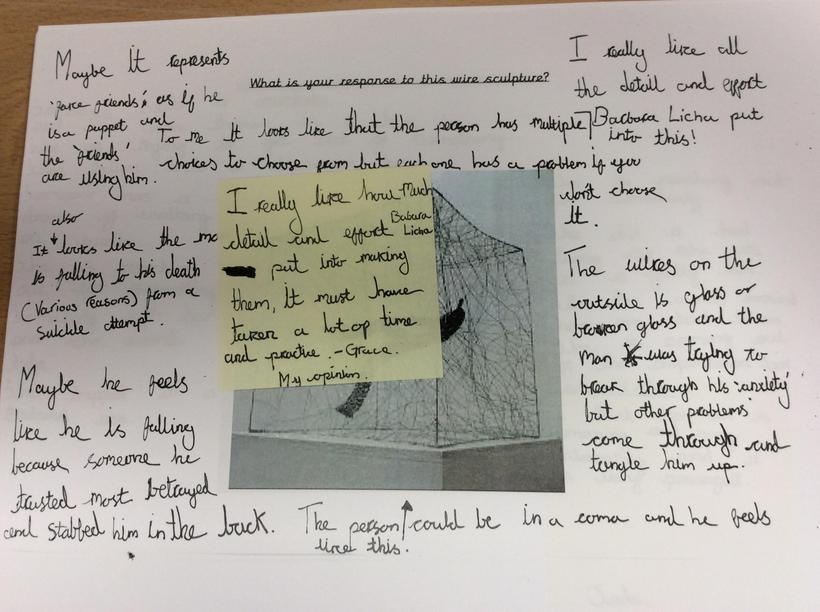 What is your response to this wire sculpture?
Maybe it represents
'farce friends', as if he
is a puppet and
the 'friends'
are using him.
To me it looks like that the person has multiple
choices to choose from but each one has a problem if you
don't choose
it.
I really like all
the detail and effort
Barbara Licha put
into this!
also
It looks like the ma
is falling to his death
(various reasons) from a
suicide attempt.
I really like how much
detail and effort Babara
Licha
put into making
them, it must have
taken a lot of time
and practice. - Grace.
My opinion.
The wires on the
outside is glass or
broken glass and the
man was trying to
break through his 'anxiety'
but other problems
come through and
tangle him up.
Maybe he feels
like he is falling
because someone he
trusted most betrayed
and stabbed him in the back.
The person could be in a coma and he feels
like this.